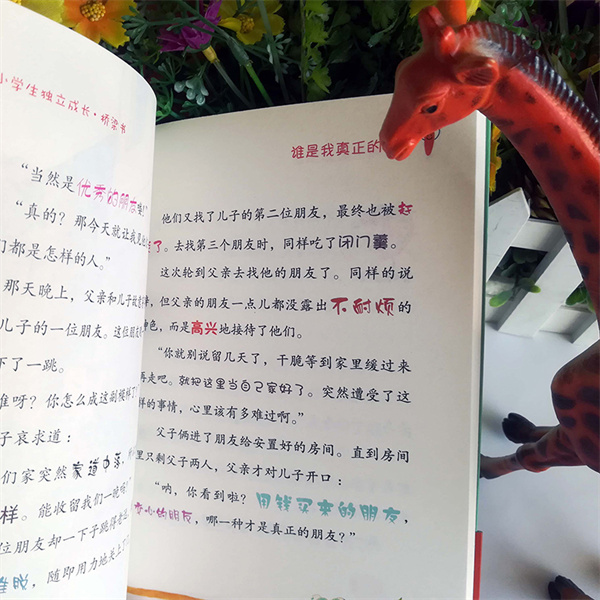 小学生独立成长·桥梁书
“当然是优秀的朋友
“真的？那今天就让我
们都是怎样的人。”
那天晚上，父亲和儿子
儿子的一位朋友。这位朋友
下了一跳。
谁呀？你怎么成这副模样了
子哀求道：
们家突然家道中落，
样。能收留我们一晚吗
位朋友却一下子跳得老远
难脱，随即用力地关上了
谁是我真正的
他们又找了儿子的第二位朋友，最终也被赶
了。去找第三个朋友时，同样吃了闭门羹。
这次轮到父亲去找他的朋友了。同样的说
但父亲的朋友一点儿都没露出不耐烦的
色，而是高兴地接待了他们。
“你就别说留几天了，干脆等到家里缓过来
再走吧。就把这里当自己家好了。突然遭受了这
样的事情，心里该有多难过啊。”
父子俩进了朋友给安置好的房间。直到房间
里只剩父子两人，父亲才对儿子开口：
“呐，你看到啦？用钱买来的朋友，
变心的朋友，哪一种才是真正的朋友？”